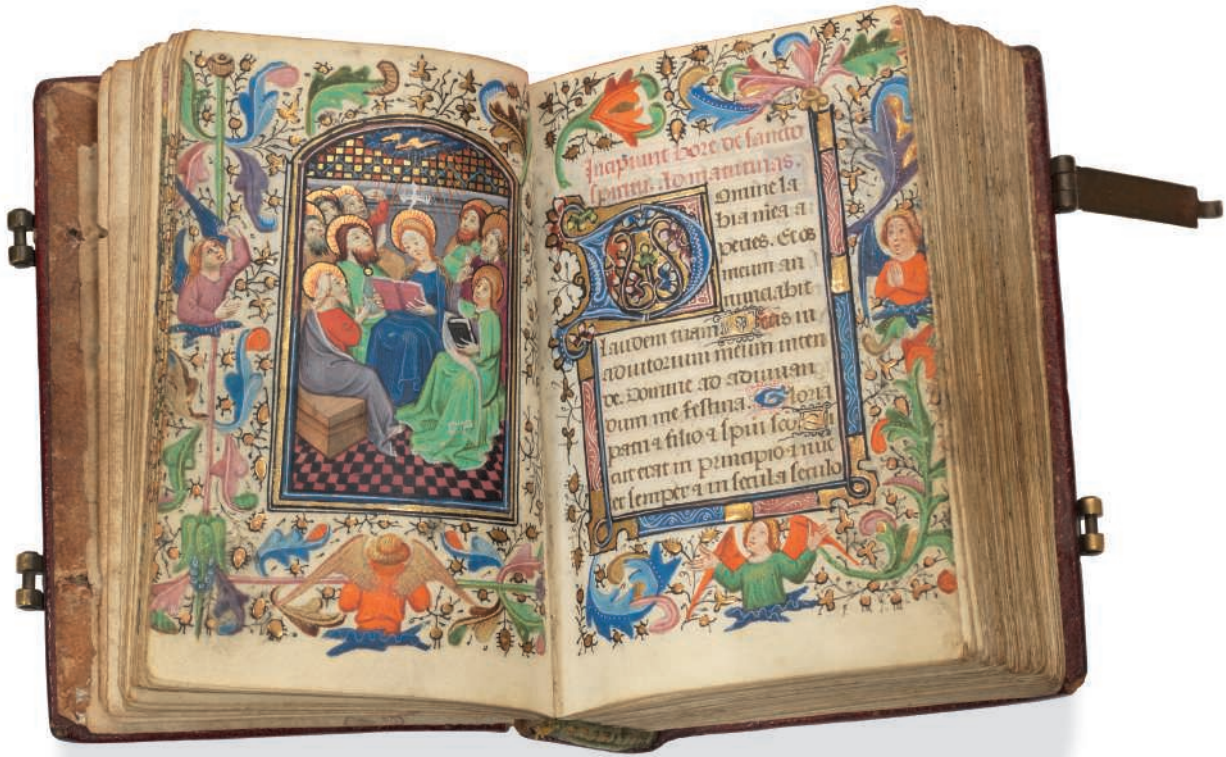 Incipiunt hore de sancto
spiritu. Ad matutinas.
Domine la
bia mea a
peries. Et os
meum an
nunciabit
laudem tuam. Deus in
adiutorium meum inten
de. Domine ad adiuuan
dum me festina. Gloria
patri ⁊ filio ⁊ spiui sco. S
icut erat in principio ⁊ nuc
et semper ⁊ in secula seculo